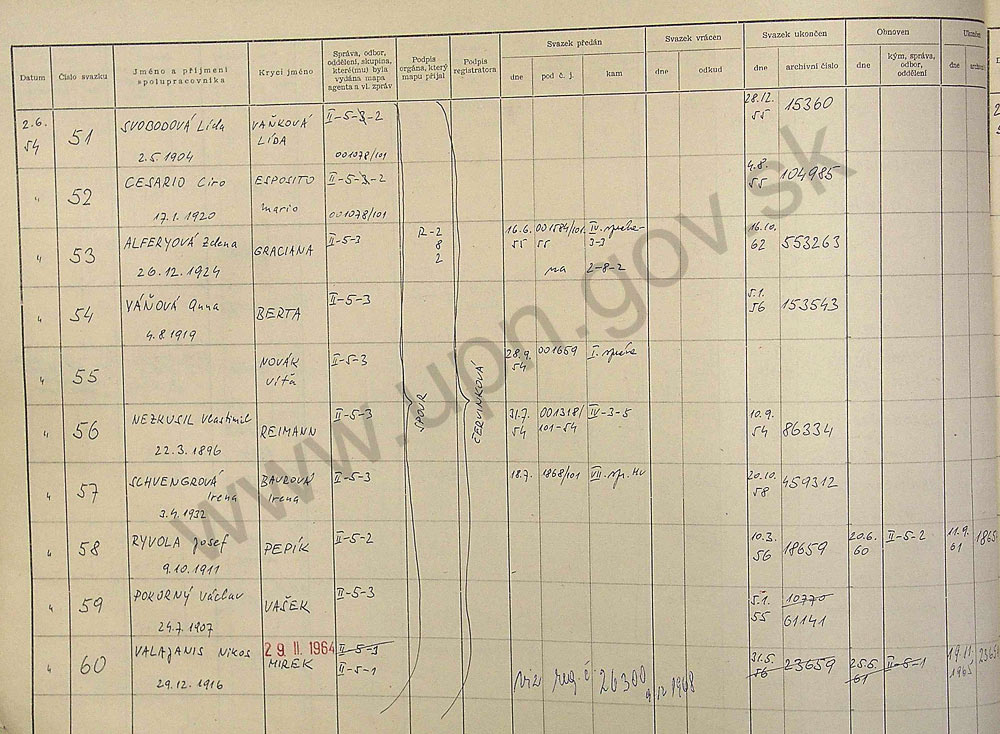 Datum
Číslo svazku
Jméno a příjmení
spolupracovníka
Krycí jméno
Správa, odbor,
oddělení, skupina,
které(mu) byla
vydána mapa
agenta a vl. zpráv
Podpis
orgána, který
mapu přijal
Podpis
registratora
Svazek předán
dne
pod č. j.
kam
Svazek vrácen
dne
odkud
Svazek ukončen
dne
archivní číslo
Obnoven
dne
kým, správa,
odbor,
oddělení
Ukončen
dne
2.6.
54
51
SVOBODOVÁ Lída
2.5.1904
VAŇKOVÁ
LÍDA
II-5-3-2
001078/101
28.12.
55
15360
"
52
CESARIO Ciro
17.1.1920
ESPOSITO
Mario
II-5-3-2
001078/101
4.8.
55
104985
"
53
ALFERYOVÁ Zdena
26.12.1924
GRACIANA
II-5-3
8
2
16.6.
55
001584/101
55
na
IV. správa-
3-3
2-8-2
16.10.
62
553263
"
54
VÁŇOVÁ Anna
4.8.1919
BERTA
II-5-3
5.1.
56
153543
"
55
NOVÁK
Víťa
II-5-3
28.9.
54
001659
I. správa
"
56
NEZKUSIL Vlastimil
22.3.1896
REIMANN
II-5-3
ŠPÚR
ČERVINKOVÁ
31.7.
54
001318/
101-54
IV-3-5
10.9.
54
86334
"
57
SCHVENGROVÁ
Irena
3.4.1932
BAUROVÁ
Irena
II-5-3
18.7.
1868/101
VII. sp. MV
20.10.
58
459312
"
58
RYVOLA Josef
9.10.1911
PEPÍK
II-5-2
10.3.
56
18659
20.6.
60
II-5-2
11.9.
61
"
59
POKORNÝ Václav
24.7.1907
VAŠEK
II-5-3
5.1.
55
10770
61141
"
60
VALAJANIS Nikos
29.12.1916
29 II. 1964
MIREK
II-5-3
II-5-1
viz reg. č. 26300
1968
31.5.
56
23659
25.6.
61
II-5-1
19.11.
1965
www.upn.gov.sk